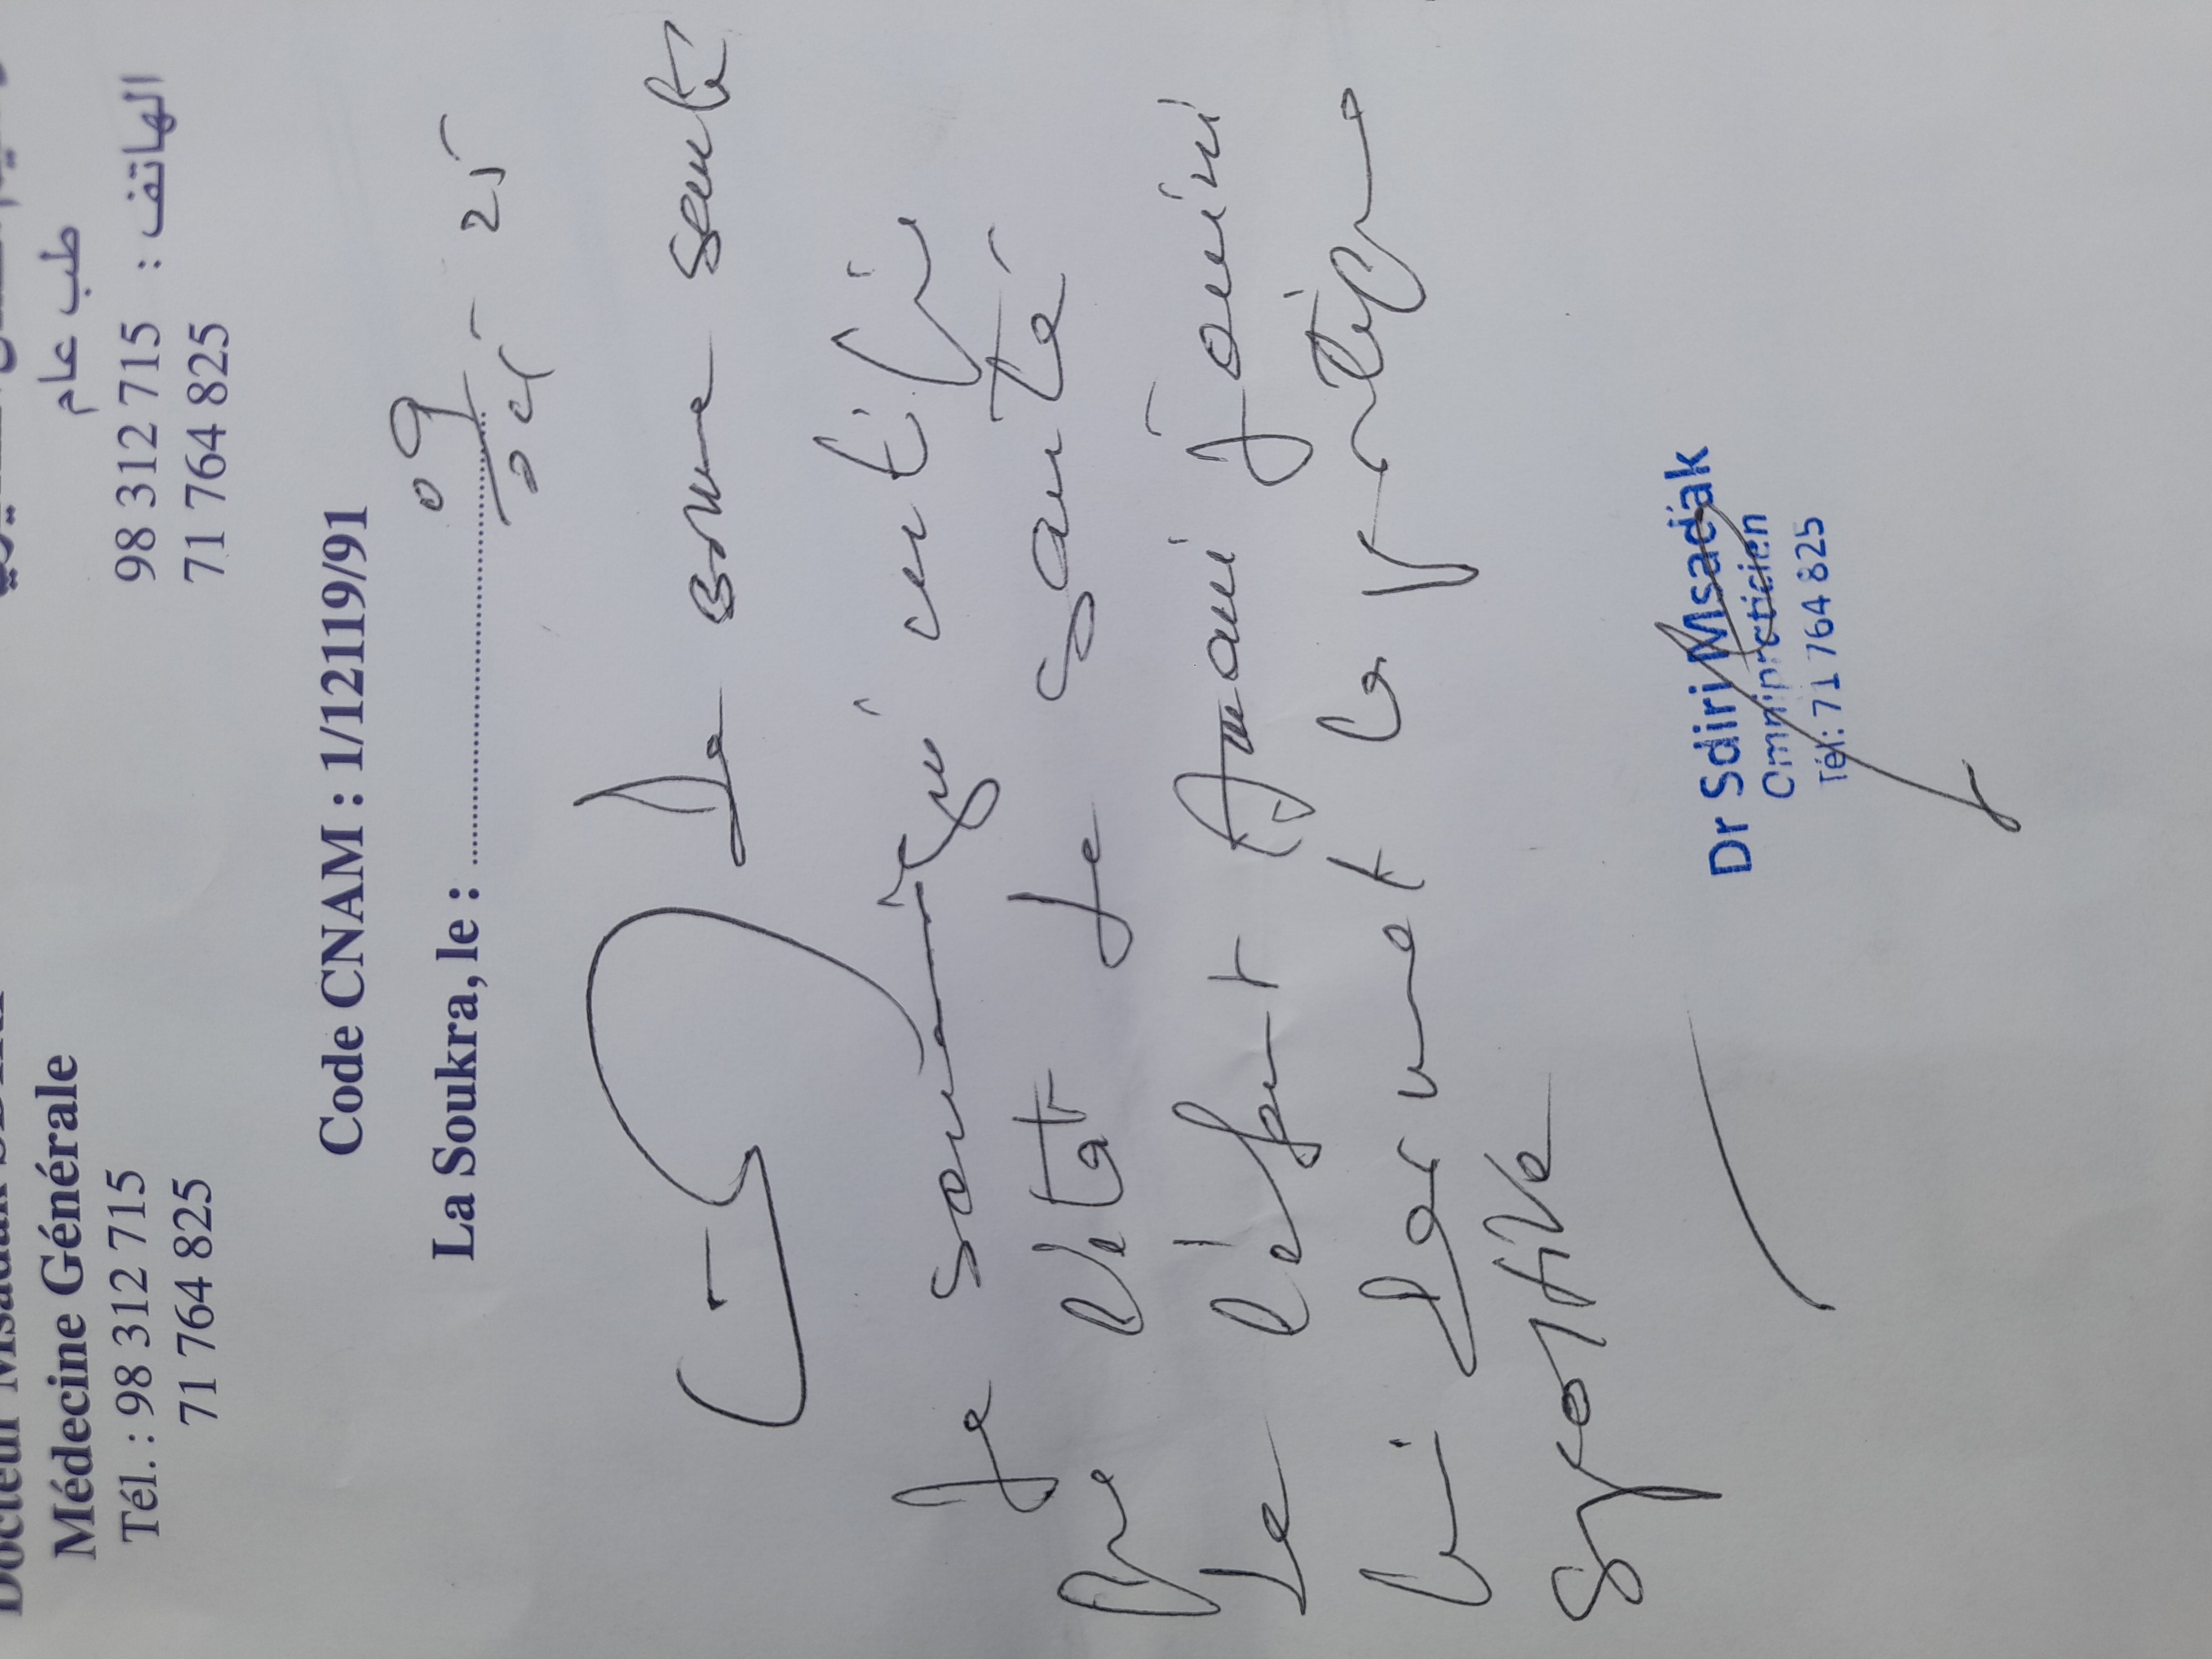 Docteur Msadak SDIRI
Médecine Générale
Tél. : 98 312 715
71 764 825
طب عام
الهاتف : 98 312 715
71 764 825
Code CNAM : 1/12119/91
La Soukra, le : 09 25
De bonne santé
Je soussigné certifie
que l'état de santé
de l'enfant Amani Jouini
lui permet la pratique
sportive
Dr Sdiri Msadak
Omnipraticien
Tél: 71 764 825